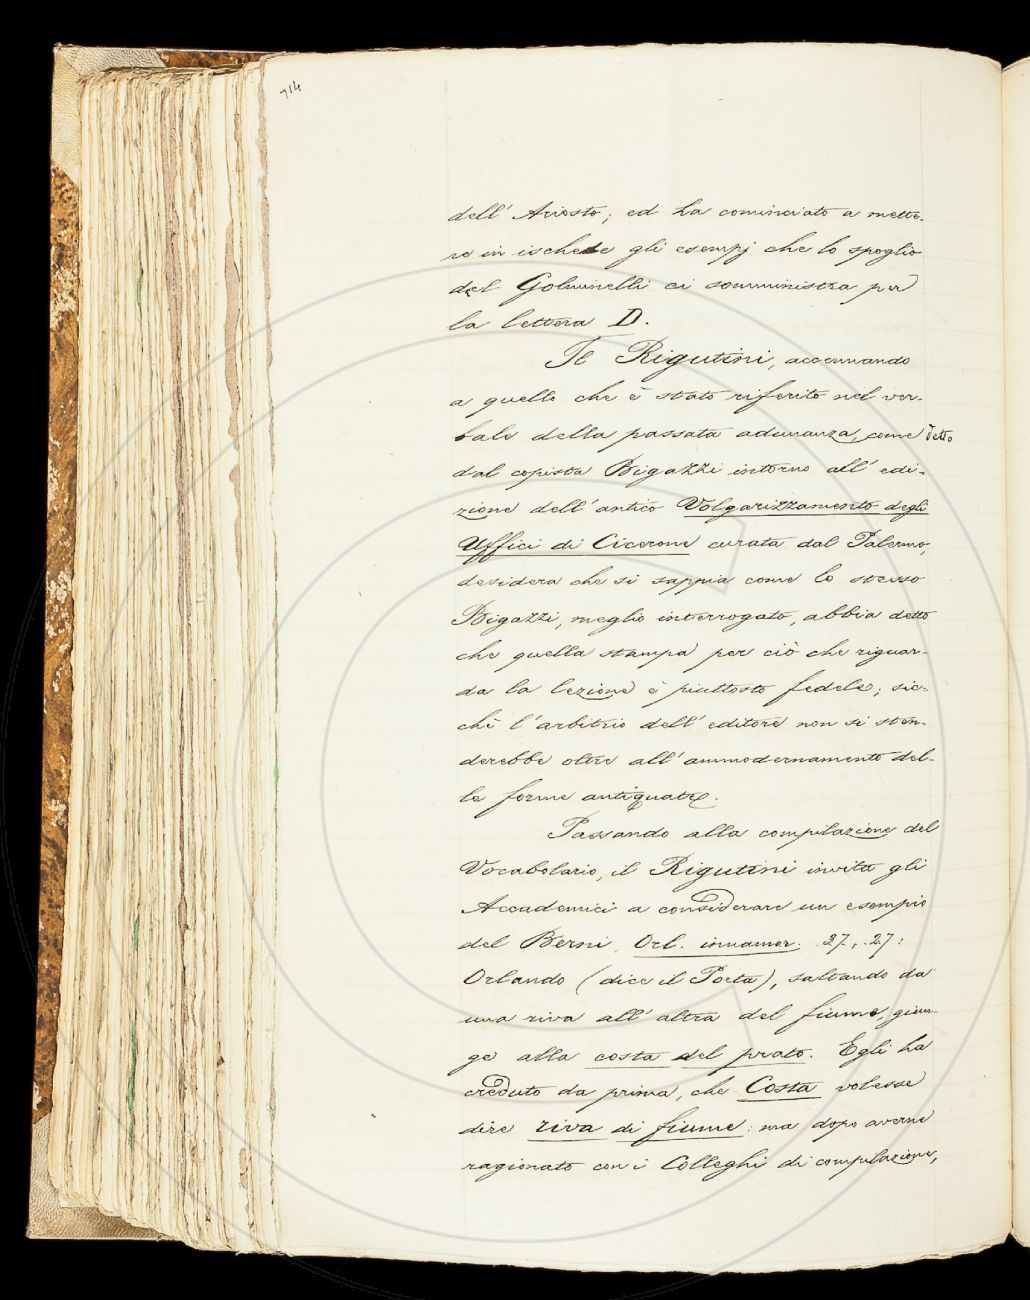 714
dell' Ariosto; ed ha cominciato a mette-
re in ischede gli esempj che lo spoglio
del Golminelli ci somministra per
la lettera D.
Il Rigutini, accennando
a quello che è stato riferito nel ver-
bale della passata adunanza, come detto
dal copista Bigazzi intorno all' edi-
zione dell' antico Volgarizzamento degli
Uffici di Cicerone curata dal Palermo,
desidera che si sappia come lo stesso
Bigazzi, meglio interrogato, abbia detto
che quella stampa per ciò che riguar-
da la lezione è piuttosto fedele; sic-
chè l'arbitrio dell' editore non si sten-
derebbe oltre all' ammodernamento del-
le forme antiquate.
Passando alla compilazione del
Vocabolario, il Rigutini invita gli
Accademici a considerare un esempio
del Berni, Orl. innamor. 37. 27:
Orlando (dice il Poeta), saltando da
una riva all' altra del fiume, giun-
ge alla costa del prato. Egli ha
creduto da prima, che Costa volesse
dire riva di fiume: ma dopo averne
ragionato con i Colleghi di compilazione,